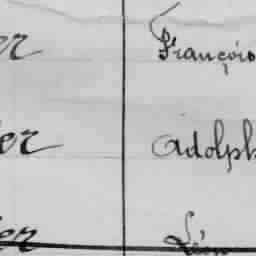 er François
er Adolph
er Léon